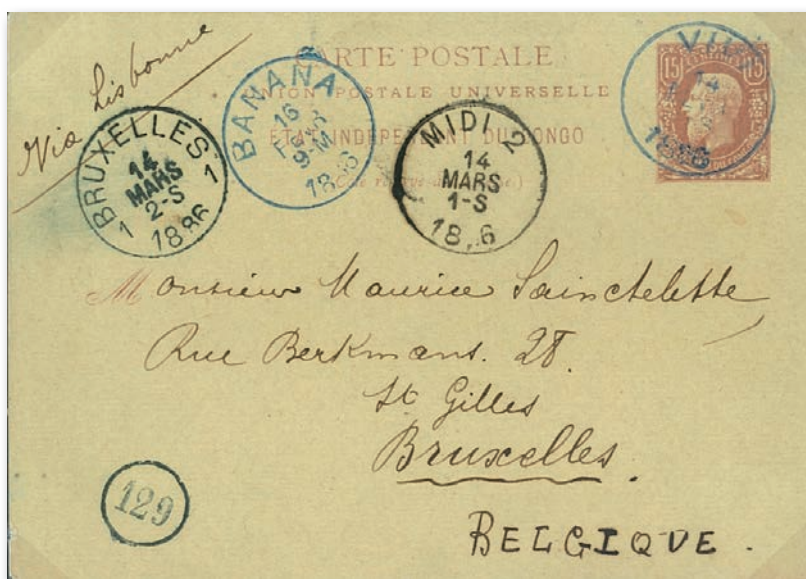 Via Lisbonne
CARTE POSTALE
UNION POSTALE UNIVERSELLE
ÉTAT INDÉPENDANT DU CONGO
15 CENTIMES 15
VIVI
14
1886
BANANA
16
FEVR
9-M
1886
BRUXELLES
14
MARS
2-S
1 1886 1
MIDI 2
14
MARS
1-S
18 6
Monsieur Maurice Sainctelette
Rue Berkmans. 28.
St Gilles
Bruxelles.
BELGIQUE.
129